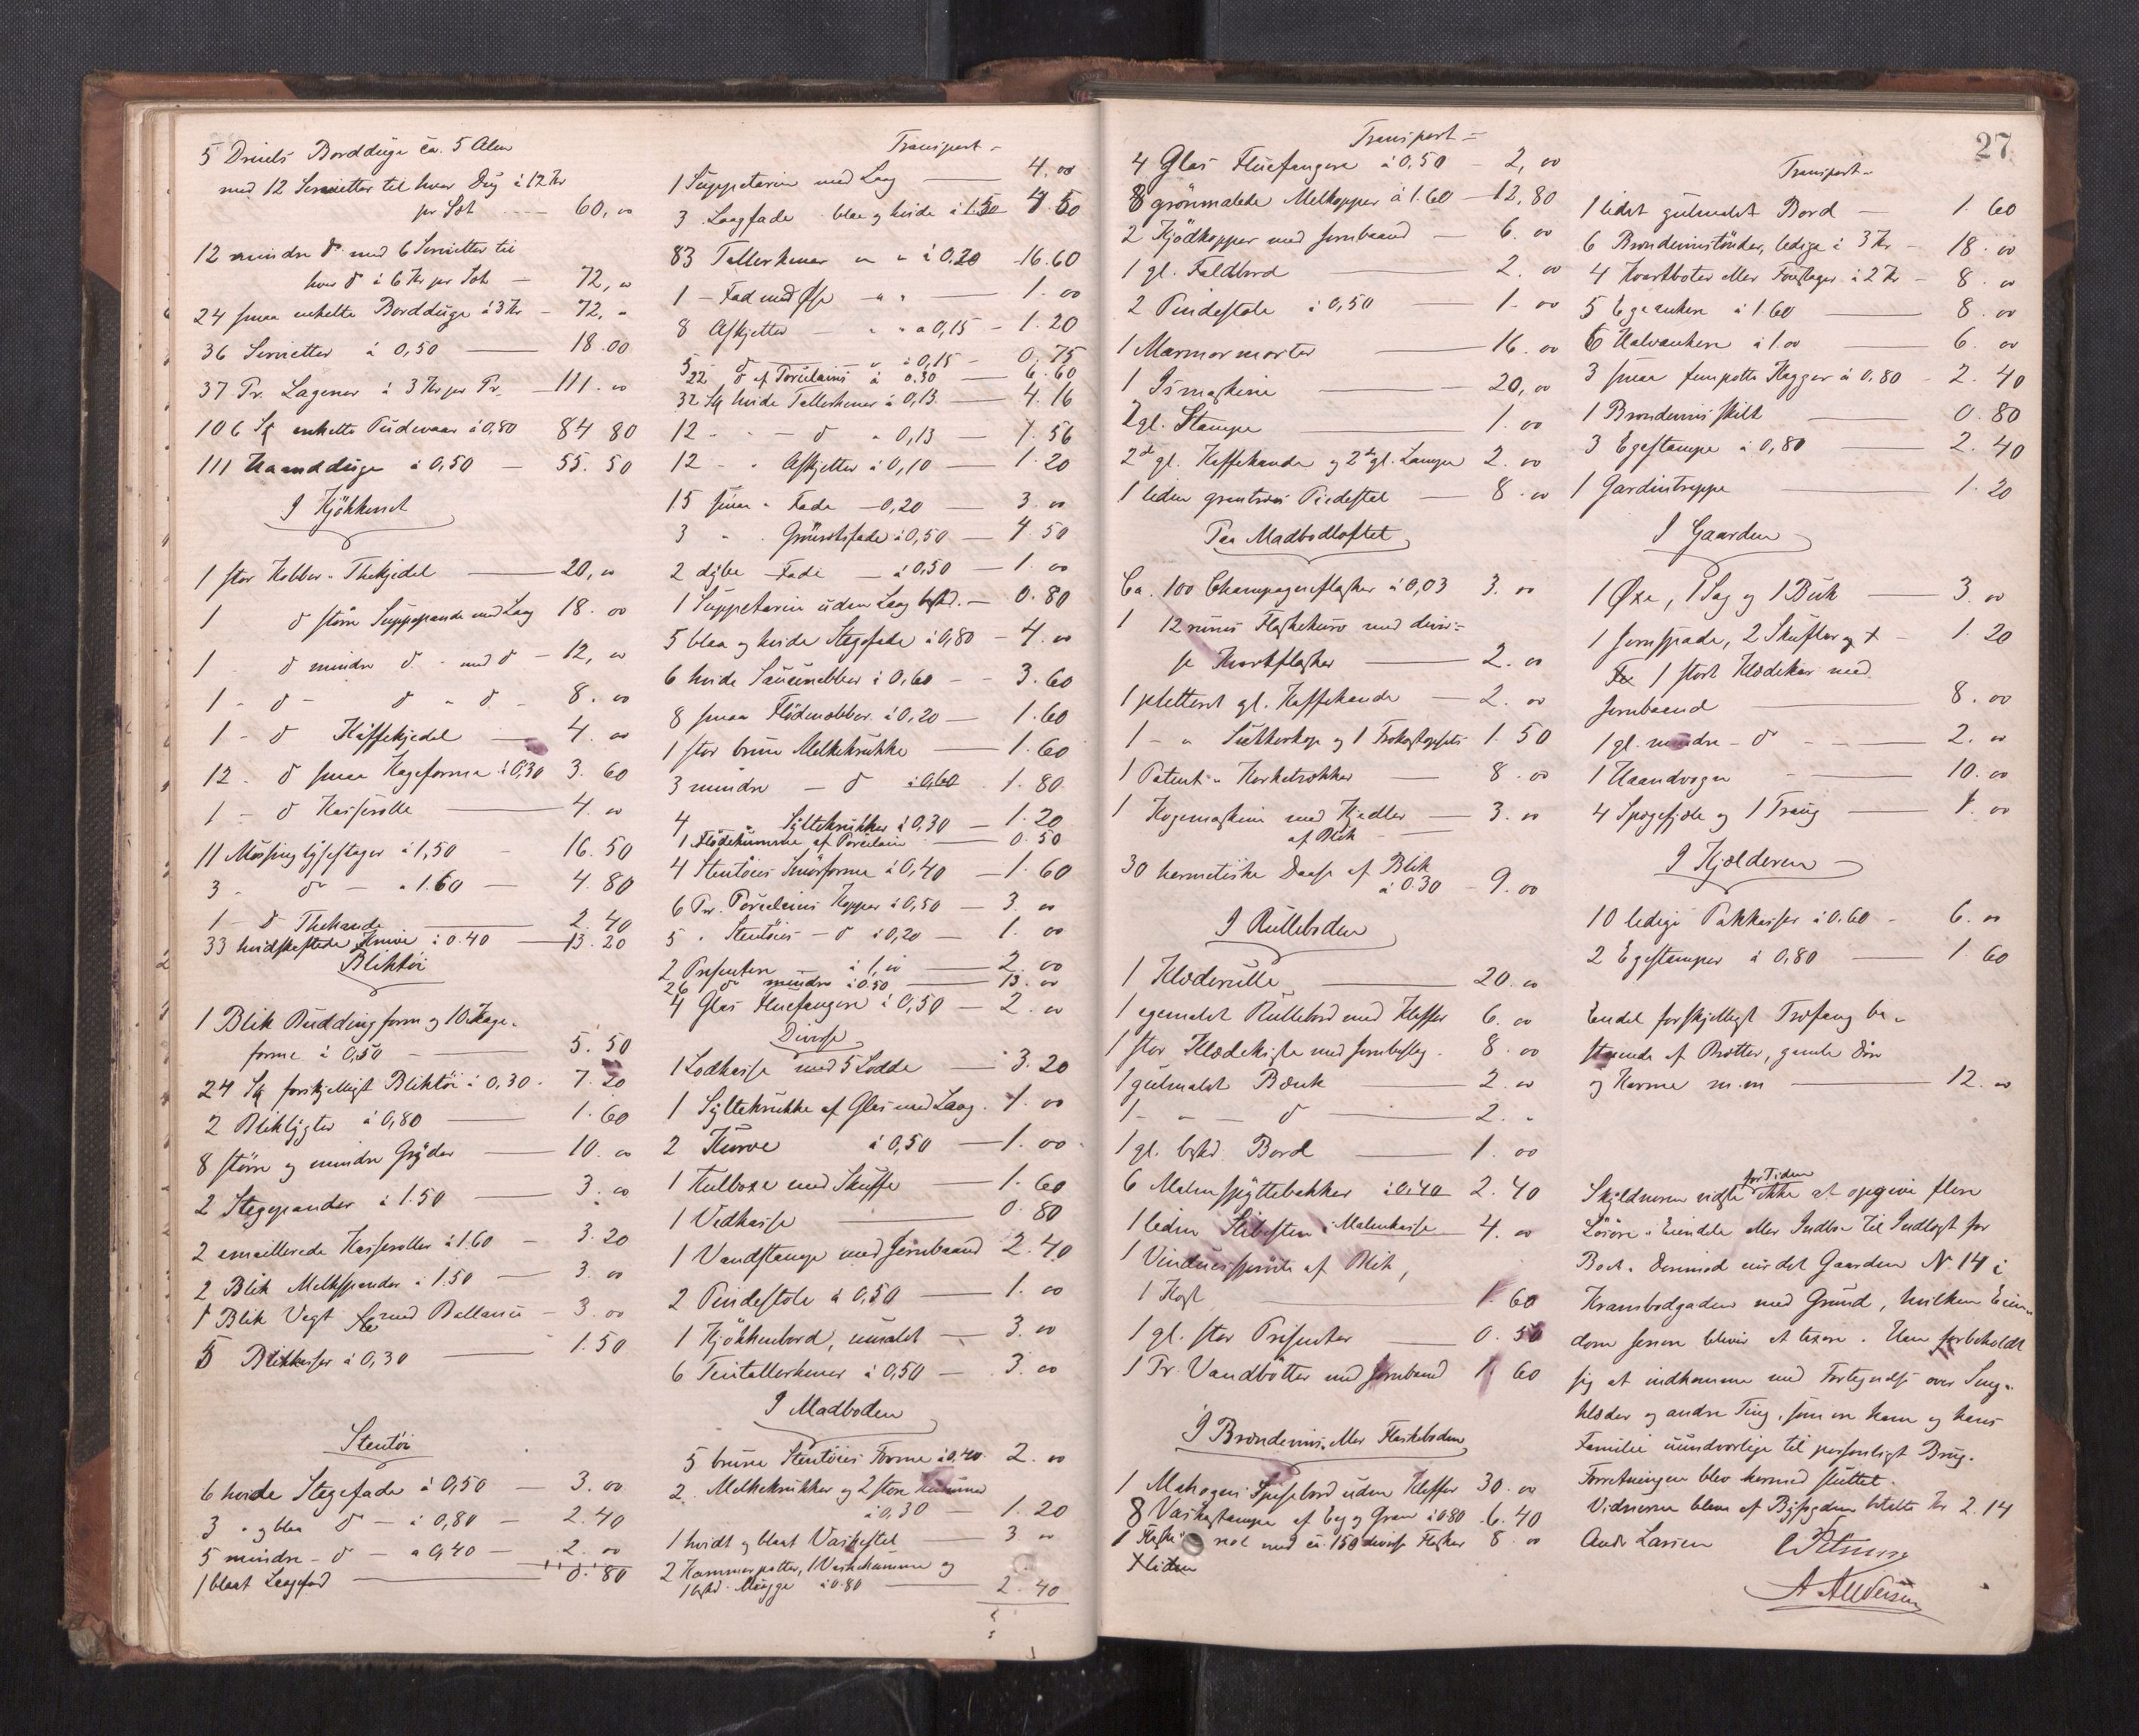 5 Dreiels Bordduge ca. 5 Alen
med 12 Servietter til hver Dug à 12 Kr
pr Sæt 60,00
12 mindre do med 6 Servietter til
hver do à 6 Kr pr Sæt - 72,00
24 smaa enkelte Bordduge à 3 Kr - 72,"
36 Servietter à 0,50 — 18.00
37 Pr. Lagener à 3 Kr pr Pr. — 111.00
106 Stk enkelte Pudevaar à 0,80 84 80
111 Haandduge à 0,50 — 55.50
I Kjökkenet
1 stor Kobber-Thekjedel — 20,00
1 do större Suppepande med Laag 18.00
1 - do mindre do - med do - 12,00
1 - do - do " do - 8.00
1 - do Kaffekjedel — 4.00
12 - do smaa Kageforme à 0,30 3.60
1 - do Kasserolle — 4.00
11 Messing lysestager à 1,50 - 16.50
3 - do - à 1.60 — 4.80
1 - do Thekande — 2.40
33 hvidskaftede Knive à 0.40 — 13.20
Bliktöi
1 Blik Puddingform og 10 Kage-
forme à 0,50 — 5.50
24 Stk forskjelligt Bliktöi à 0,30. 7.20
2 Bliklygter à 0,80 — 1.60
8 större og mindre Gryder — 10.00
2 Stegepander à 1.50 — 3.00
2 emaillerede Kasseroller à 1.60 - 3.20
2 Blik Melkespander à 1.50 — 3.00
1 Blik Vegt med Ballance - 3.00
5 Blikkasser à 0,30 — 1.50
Stentöi
6 hvide Stegefade à 0,50 — 3.00
3 " og blaa do - à 0,80 - 2.40
5 mindre - do - à 0,40 - 2.00
1 blaat Laagfad — 0.80
Transport -
1 Suppeterin med Laag — 4.00
3 Laagfade blaa og hvide à 1.50 4.50
83 Tallerkener " " à 0.20 - 16.60
1 - Fad med — 1.00
8 Asjetter — " " à 0,15 - 1.20
5 - do — " à 0,15 - 0.75
22 do af Porcelains à 0.30 — 6.60
32 Stk hvide Tallerkener à 0,13 — 4.16
12 - " - do " 0,13 — 1.56
12 - " Asjetter à 0,10 — 1.20
15 smaa " Fade - 0,20 — 3.00
3 " " Grönsætsfade à 0,50 — 1 50
2 dybe Fade — à 0,50 — 1.00
1 Suppeterin uden Laag beskd. — 0.80
5 blaa og hvide Stegefade à 0,80 - 4.00
6 hvide Saucenebber à 0,60 - - 3.60
8 smaa Flödenebber à 0,20 — 1.60
1 stor brun Melkekrukke — 1.60
3 mindre - do à 0,60 1.80
4 " Syltekrukker à 0,30 — 1.20
1 Flödekumme af Porcelain — 0.50
4 Stentöies Smörforme à 0,40 — 1.60
6 Pr. Porcelains Kopper à 0,50 — 3.00
5 " Stentöies - do à 0,20 — 1.00
2 Presenter à 1,00 — 2.00
26 do mindre à 0.50 — 13.00
4 Glas Fluefangere à 0,50 - 2.00
Diverse
1 Lodkasse med 5 Lodde — 3.20
1 Syltekrukke af Glas med Laag. 1.00
2 Kurve à 0,50 — 1.00
1 Kulboxe med Skuffe — 1.60
1 Vedkasse — 0.80
1 Vandstampe med Jernbaand 2.40
2 Pindestole à 0,50 — 1.00
1 Kjökkenbord, umalet — 3.00
6 Tintallerkener à 0,50 — 3.00
I Madboden
5 brune Stentöies Forme à 0,40. 2.00
2 Melkekrukker og 2 store Kummer
à 0,30 — 1.20
1 hvidt og blaat Vaskestel — 3.00
2 Kammerpotter, 1 Vaskekumme og
1 beskd. Mugge à 0.80 — 2.40
27
Transport -
4 Glas Fluefangere à 0,50 - 2,00
8 grönmalede Melkopper à 1.60 — 12,80
2 Kjödkopper med Jernbaand — 6.00
1 gl. Foldbord — 2.00
2 Pindestole à 0,50 — 1.00
1 Marmormorter — 16.00
1 Ismaskine — 20,00
1 gl. Stampe — 1.00
2 de gl. Kaffekande og 2 de gl. Lamper 2.00
1 liden Piedestal — 8.00
Paa Madbodloftet
Ca. 100 Champagneflasker à 0,03 3.00
1 12 rums Flaskekurv med diver-
se Kvartflasker — 2.00
1 pletteret gl. Kaffekande — 2.00
1 - " Sukkerkop og 1 Frokostopsats 1.50
1 Patent-Korketrækker — 8.00
1 Kogemaskine med Kjedler — 3.00
af Blik
30 hermetiske Daase af Blik
à 0.30 - 9.00
I Rulleboden
1 Klæderulle — 20.00
1 egemalet Rullebord med Kleffer 6.00
1 stor Klædekiste med Jernbeslag. 8.00
1 gulmalet Bænk — 2.00
1 - " do — 2."
1 gl. beskd Bord — 1.00
6 Malmspyttebakker à 0.40 2.40
1 liden Slibesten i Malmkasse 4.00
1 Vinduessprøite af Blik,
1 Kost — 1.60
1 gl. stor Presenter — 0.50
1 Pr. Vandbötter med Jernbaand 1.60
I Brændevins- eller Flaskeboden
1 Mahogni Spisebord uden Kleffer 30.00
8 Vaskestamper af Eg og Gran à 0.80 - 6.40
1 Flaske reol med ca. 150 diverse Flasker 8.00
X liden
Transport -
1 lidet gulmalet Bord — 1.60
6 Brændevinstönder, ledige à 3 Kr - 18.00
4 Kvartboter eller Foustager à 2 Kr - 8.00
5 Egeankere à 1.60 — 8.00
6 Halvankere à 1.00 — 6.00
3 smaa fempotte Kagger à 0,80 - 2.40
1 Brændevins skilt — 0.80
3 Egestampe à 0,80 — 2.40
1 Gardintrappe — 1.20
I Gaarden
1 Øxe, 1 Sag og 1 Buk — 3.00
1 Jernspade, 2 Skufler og X - 1.20
1 stort Klædekar med
Jernbaand — 8.00
1 gl. mindre - do — 2.00
1 Haandvogn — 10.00
4 og 1 Traug — 1.00
I Kjælderen
10 ledige Pakkasser à 0.60 - 6.00
2 Egestamper à 0,80 — 1.60
Endel forskjelligt Træfang be-
staaende af Brætter, gamle Döre
og Karme m.m — 12.00
Skyldneren vidste for Tiden ikke at opgive flere
Lösöre-Eiendele eller Indbo til Indlagt for
Boet. Derimod eier det Gaarden No 14 i
Krambodgaden med Grund, hvilken Eien-
dom senere bliver at taxere. Han forbeholdt
sig at indkomme med Fortegnelse over Seng-
klæder og andre Ting, som er ham og hans
Familie uundværlige til personligt Brug.
Forretningen blev hermed sluttet.
Vidnerne bleve af Byfogden betalte Kr 2.14
Andr Larsen
A Andersen